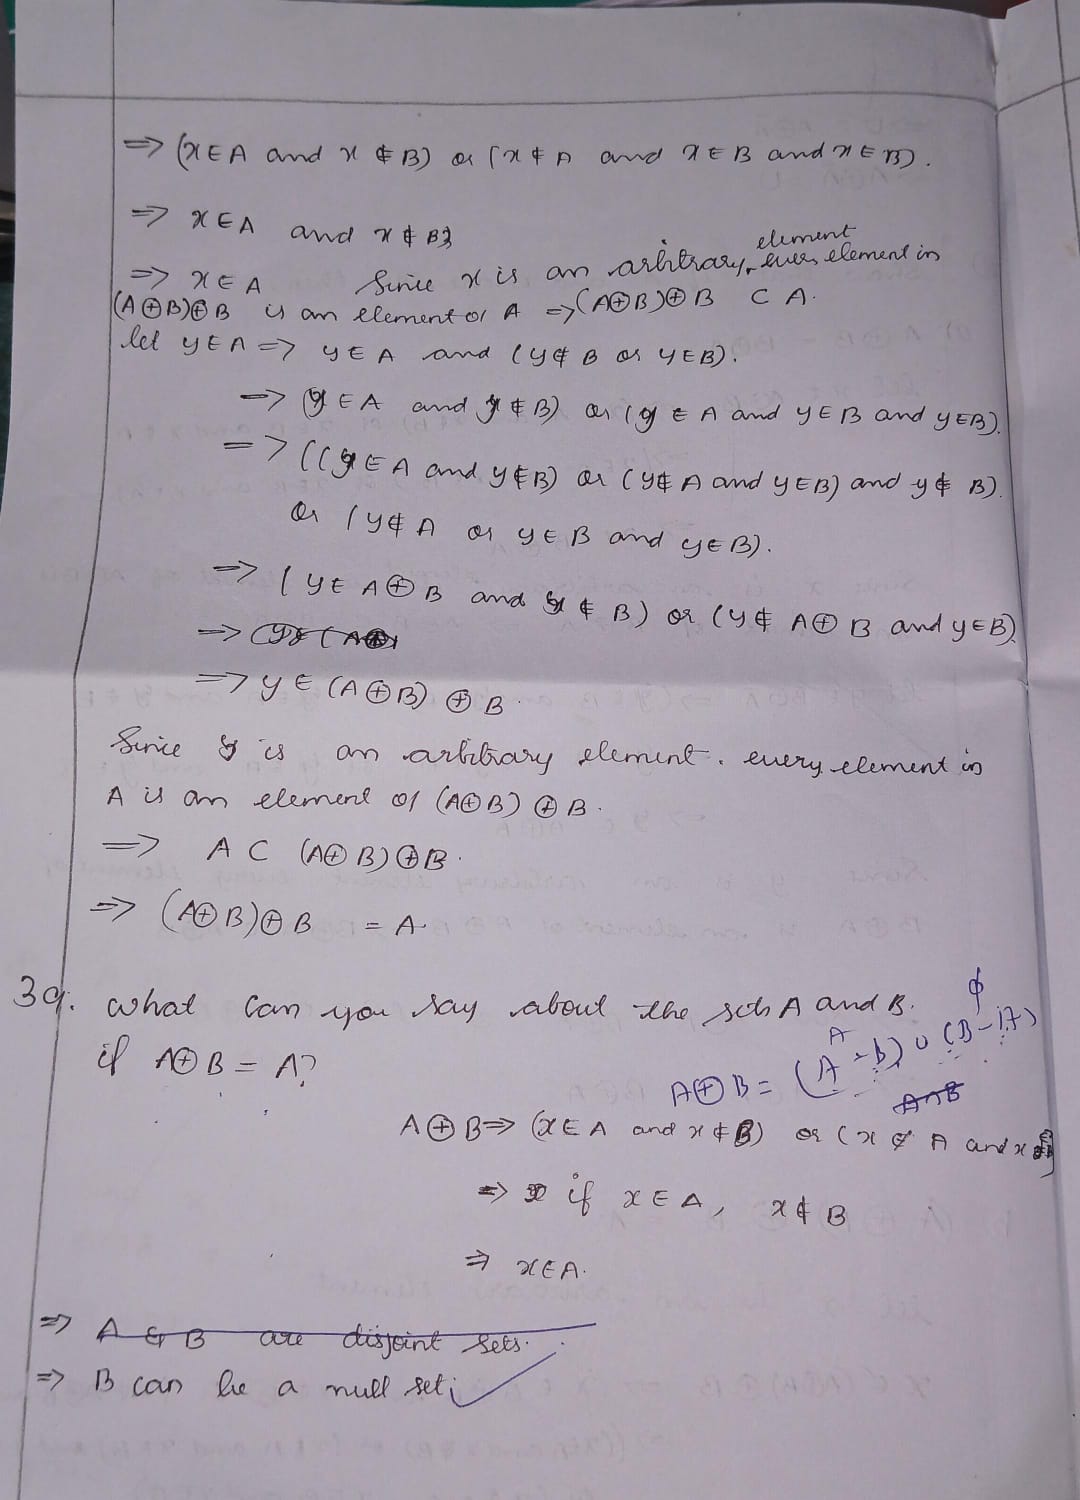 => (x ∈ A and x ∉ B) or (x ∉ A and x ∈ B and x ∈ B).
=> x ∈ A and x ∉ B}
element
=> x ∈ A Since x is an arbitrary, every element in
(A⊕B)⊕B is an element of A => (A⊕B)⊕B ⊂ A.
let y ∈ A => y ∈ A and (y ∉ B or y ∈ B).
=> (y ∈ A and y ∉ B) or (y ∈ A and y ∈ B and y ∈ B).
=> ((y ∈ A and y ∉ B) or (y ∉ A and y ∈ B) and y ∉ B).
or (y ∉ A or y ∈ B and y ∈ B).
=> (y ∈ A⊕B and y ∉ B) or (y ∉ A⊕B and y ∈ B)
=>
=> y ∈ (A⊕B) ⊕ B.
Since y is an arbitrary element. every element in
A is an element of (A⊕B) ⊕ B.
=> A ⊂ (A⊕B)⊕B.
=> (A⊕B)⊕B = A.
39. What can you say about the sets A and B.
if A⊕B = A?
A ϕ
A⊕B = (A - B) ∪ (B - A)
A∩B
A⊕B => (x ∈ A and x ∉ B) or (x ∉ A and x
=> if x ∈ A, x ∉ B
=> x ∈ A.
=> A & B are disjoint sets.
=> B can be a null set;